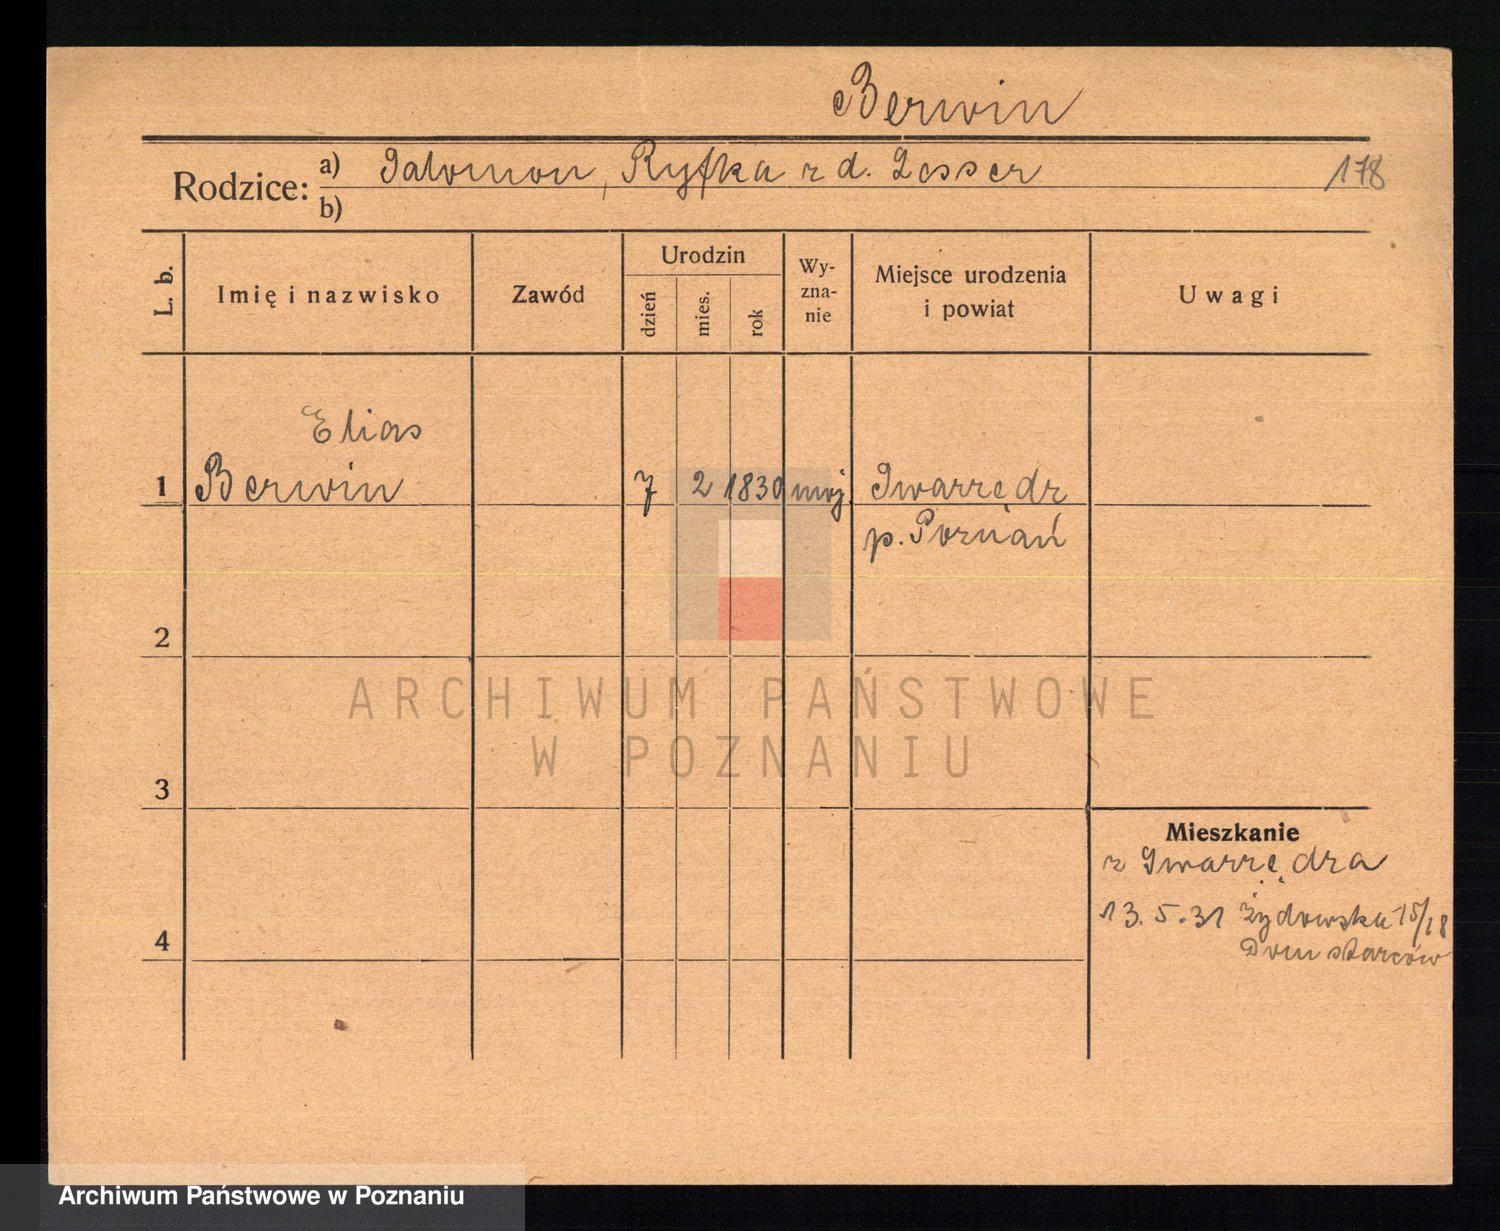 Berwin
Rodzice: a) Salomon, Ryfka z d. Lesser 178
b)
L. b. Imię i nazwisko Zawód Urodzin dzień mies. rok Wy-zna-nie Miejsce urodzenia i powiat Uwagi
Elias
1 Berwin 7 2 1830 moj. Swarzędz
p. Poznań
2
ARCHIWUM PAŃSTWOWE
W POZNANIU
3
Mieszkanie
z Swarzędza
13.5.31 Żydowska 15/18
4
Dom starców
Archiwum Państwowe w Poznaniu